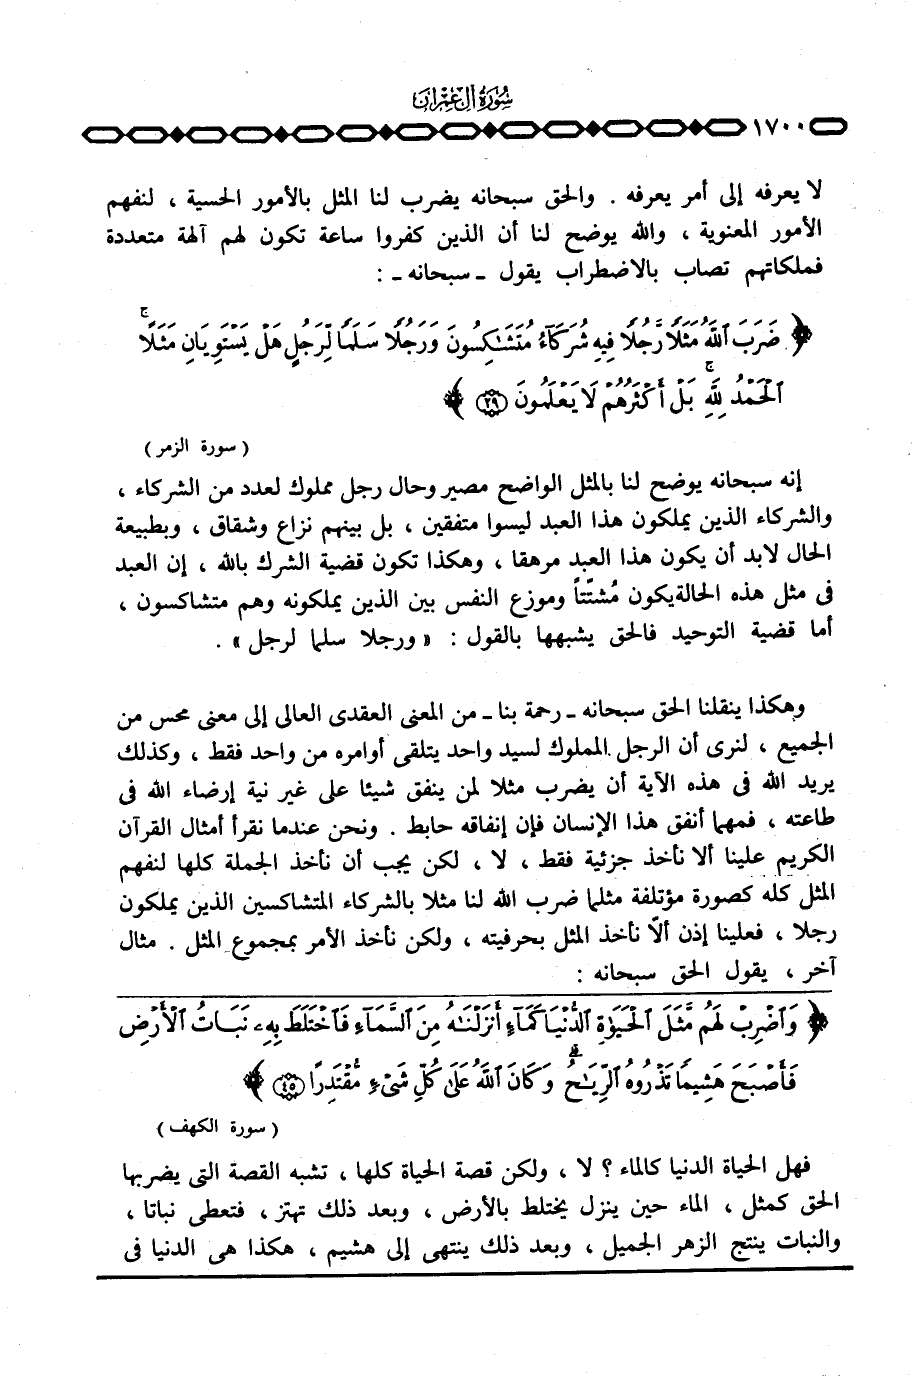 سُورَةُ آلِ عِمْرَانَ
١٧٠٠
لا يعرفه إلى أمر يعرفه . والحق سبحانه يضرب لنا المثل بالأمور الحسية ، لنفهم
الأمور المعنوية ، والله يوضح لنا أن الذين كفروا ساعة تكون لهم آلهة متعددة
فملكاتهم تصاب بالاضطراب يقول ـ سبحانه ـ :
﴿ ضَرَبَ ٱللَّهُ مَثَلًا رَّجُلًا فِيهِ شُرَكَآءُ مُتَشَـٰكِسُونَ وَرَجُلًا سَلَمًا لِّرَجُلٍ هَلْ يَسْتَوِيَانِ مَثَلًا ۚ
ٱلْحَمْدُ لِلَّهِ ۚ بَلْ أَكْثَرُهُمْ لَا يَعْلَمُونَ ۝٢٩ ﴾
( سورة الزمر )
إنه سبحانه يوضح لنا بالمثل الواضح مصير وحال رجل مملوك لعدد من الشركاء ،
والشركاء الذين يملكون هذا العبد ليسوا متفقين ، بل بينهم نزاع وشقاق ، وبطبيعة
الحال لابد أن يكون هذا العبد مرهقا ، وهكذا تكون قضية الشرك بالله ، إن العبد
فى مثل هذه الحالة يكون مُشتّتاً وموزع النفس بين الذين يملكونه وهم متشاكسون ،
أما قضية التوحيد فالحق يشبهها بالقول : « ورجلا سلما لرجل » .
وهكذا ينقلنا الحق سبحانه ـ رحمة بنا ـ من المعنى العقدى العالى إلى معنى محس من
الجميع ، لنرى أن الرجل المملوك لسيد واحد يتلقى أوامره من واحد فقط ، وكذلك
يريد الله فى هذه الآية أن يضرب مثلا لمن ينفق شيئا على غير نية إرضاء الله فى
طاعته ، فمهما أنفق هذا الإنسان فإن إنفاقه حابط . ونحن عندما نقرأ أمثال القرآن
الكريم علينا ألا نأخذ جزئية فقط ، لا ، لكن يجب أن نأخذ الجملة كلها لنفهم
المثل كله كصورة مؤتلفة مثلما ضرب الله لنا مثلا بالشركاء المتشاكسين الذين يملكون
رجلا ، فعلينا إذن ألاّ نأخذ المثل بحرفيته ، ولكن نأخذ الأمر بمجموع المثل . مثال
آخر ، يقول الحق سبحانه :
﴿ وَٱضْرِبْ لَهُم مَّثَلَ ٱلْحَيَوٰةِ ٱلدُّنْيَا كَمَآءٍ أَنزَلْنَـٰهُ مِنَ ٱلسَّمَآءِ فَٱخْتَلَطَ بِهِۦ نَبَاتُ ٱلْأَرْضِ
فَأَصْبَحَ هَشِيمًا تَذْرُوهُ ٱلرِّيَـٰحُ ۗ وَكَانَ ٱللَّهُ عَلَىٰ كُلِّ شَىْءٍ مُّقْتَدِرًا ۝٤٥ ﴾
( سورة الكهف )
فهل الحياة الدنيا كالماء ؟ لا ، ولكن قصة الحياة كلها ، تشبه القصة التى يضربها
الحق كمثل ، الماء حين ينزل يختلط بالأرض ، وبعد ذلك تهتز ، فتعطى نباتا ،
والنبات ينتج الزهر الجميل ، وبعد ذلك ينتهى إلى هشيم ، هكذا هى الدنيا فى